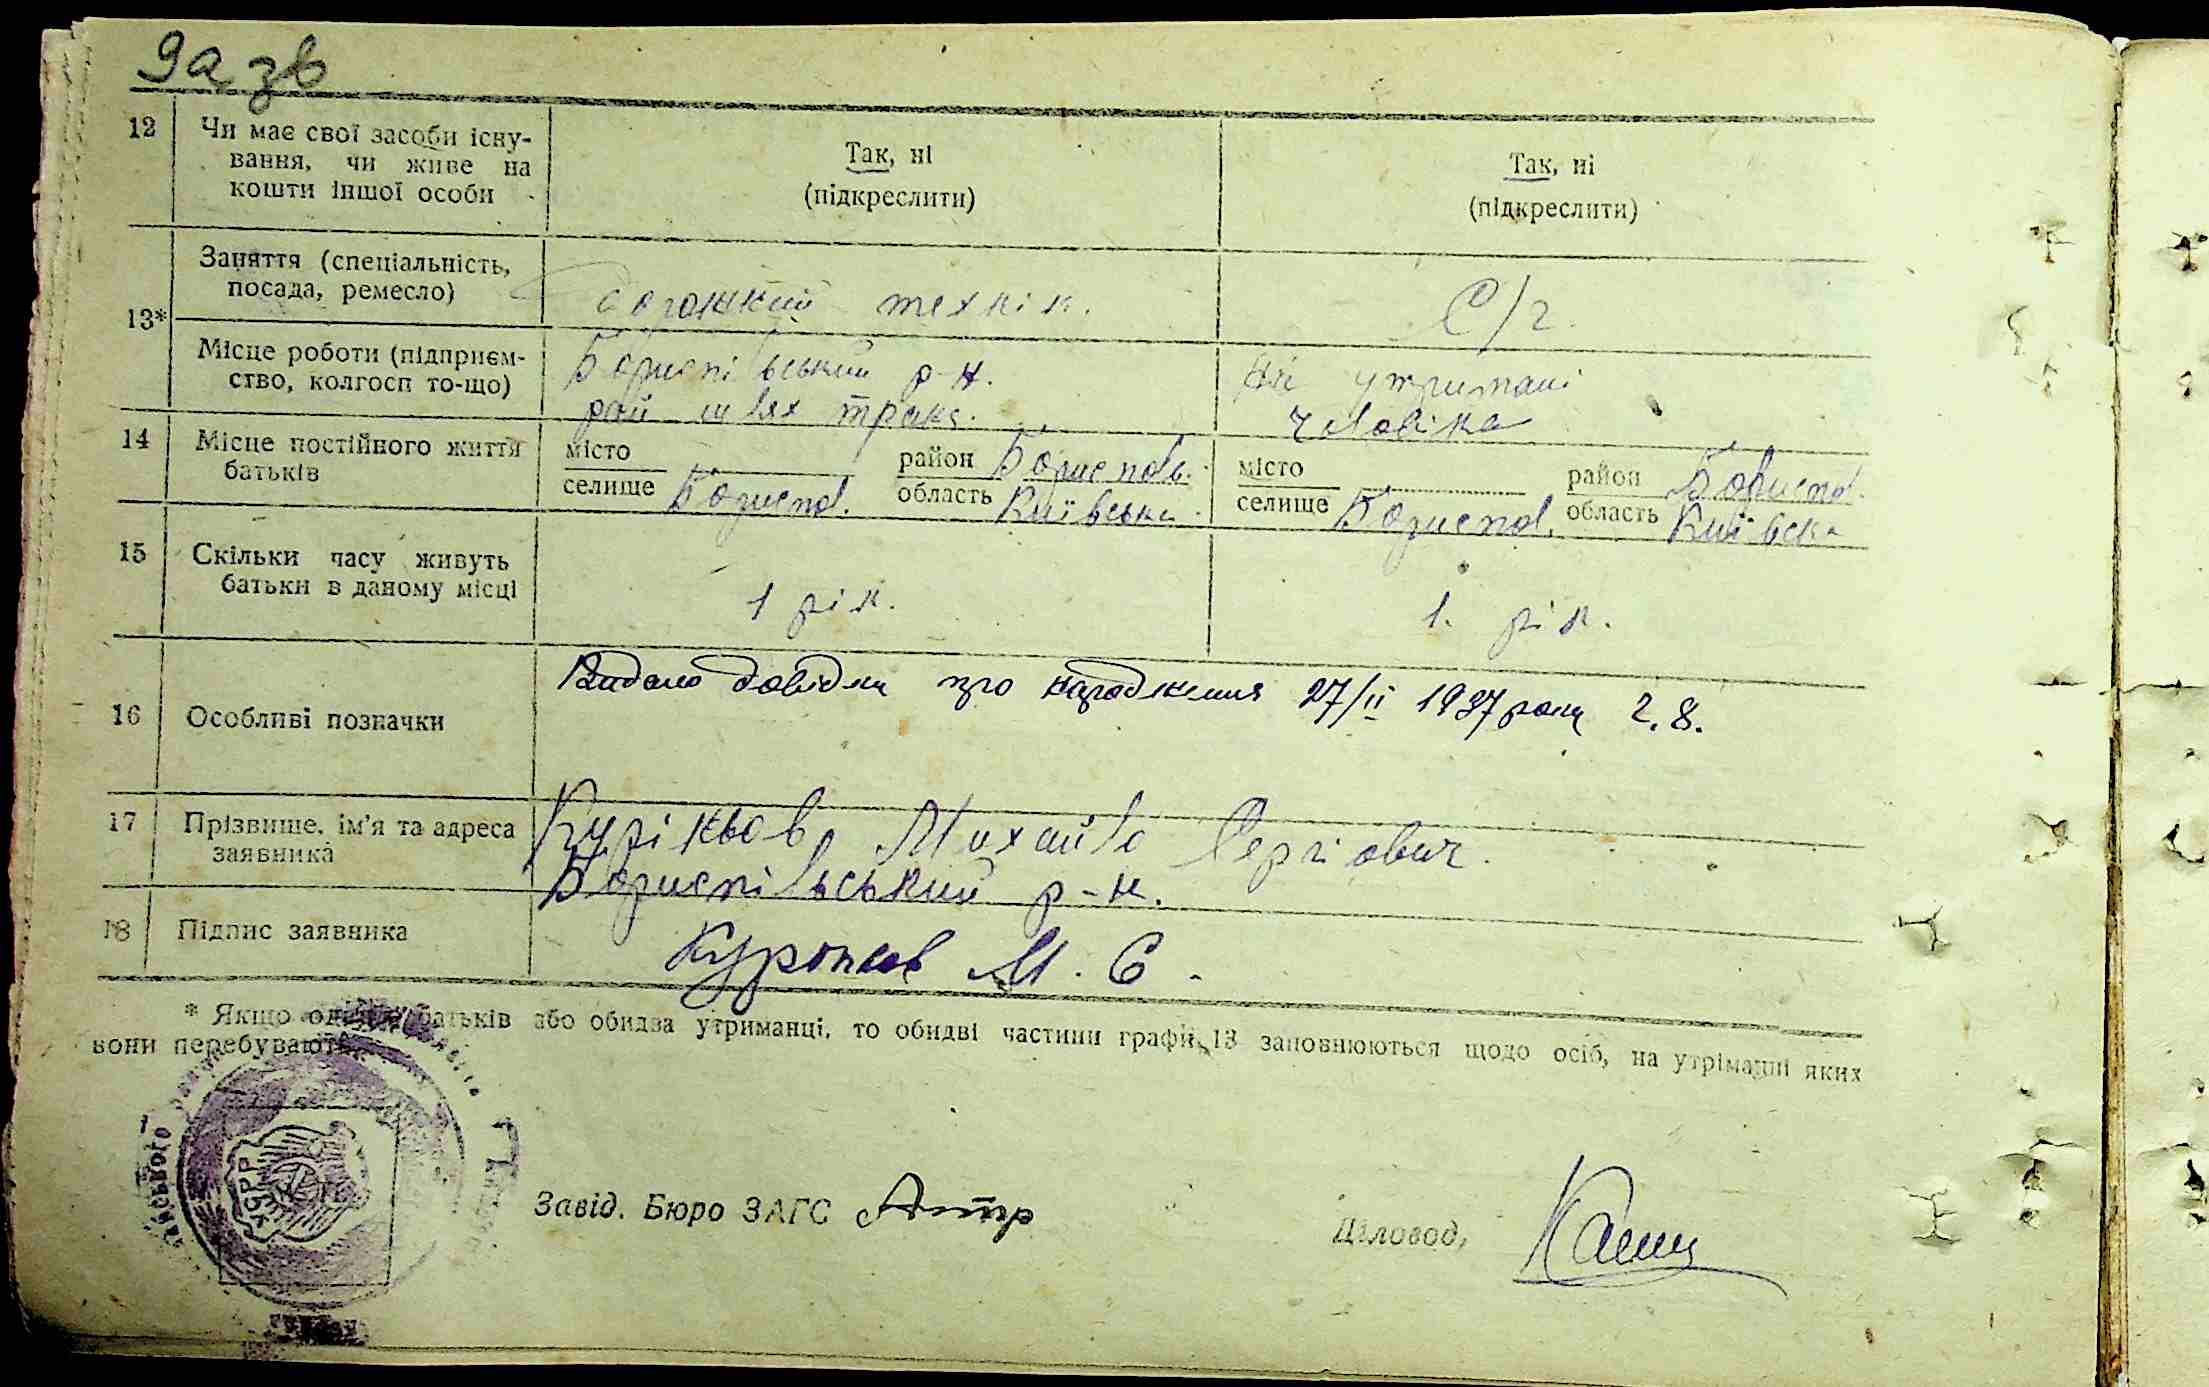 9а зв
12 Чи має свої засоби існу-
вання, чи живе на
кошти іншої особи
Так, ні
(підкреслити)
Так, ні
(підкреслити)
13*
Заняття (спеціальність,
посада, ремесло)
технік.
С/г.
Місце роботи (підприєм-
ство, колгосп то-що)
Бориспільський р-н.
рай шлях
На утримані
чоловіка
14 Місце постійного життя
батьків
місто
селище Бориспол.
район Борисполь.
область Київська
місто
селище Бориспол.
район Бориспол.
область Київська
15 Скільки часу живуть
батьки в даному місці
1 рік.
1. рік.
16 Особливі позначки
Видана довідка про народження 27/II 1937 року
17 Прізвище, ім'я та адреса
заявника
Михайло Сергіович.
Бориспільський р-н.
18 Підпис заявника
М. С.
* Якщо батьків або обидва утриманці, то обидві частини графи 13 заповнюються щодо осіб, на утріманні яких
вони перебувають.
УСРР
Завід. Бюро ЗАГС
Діловод,